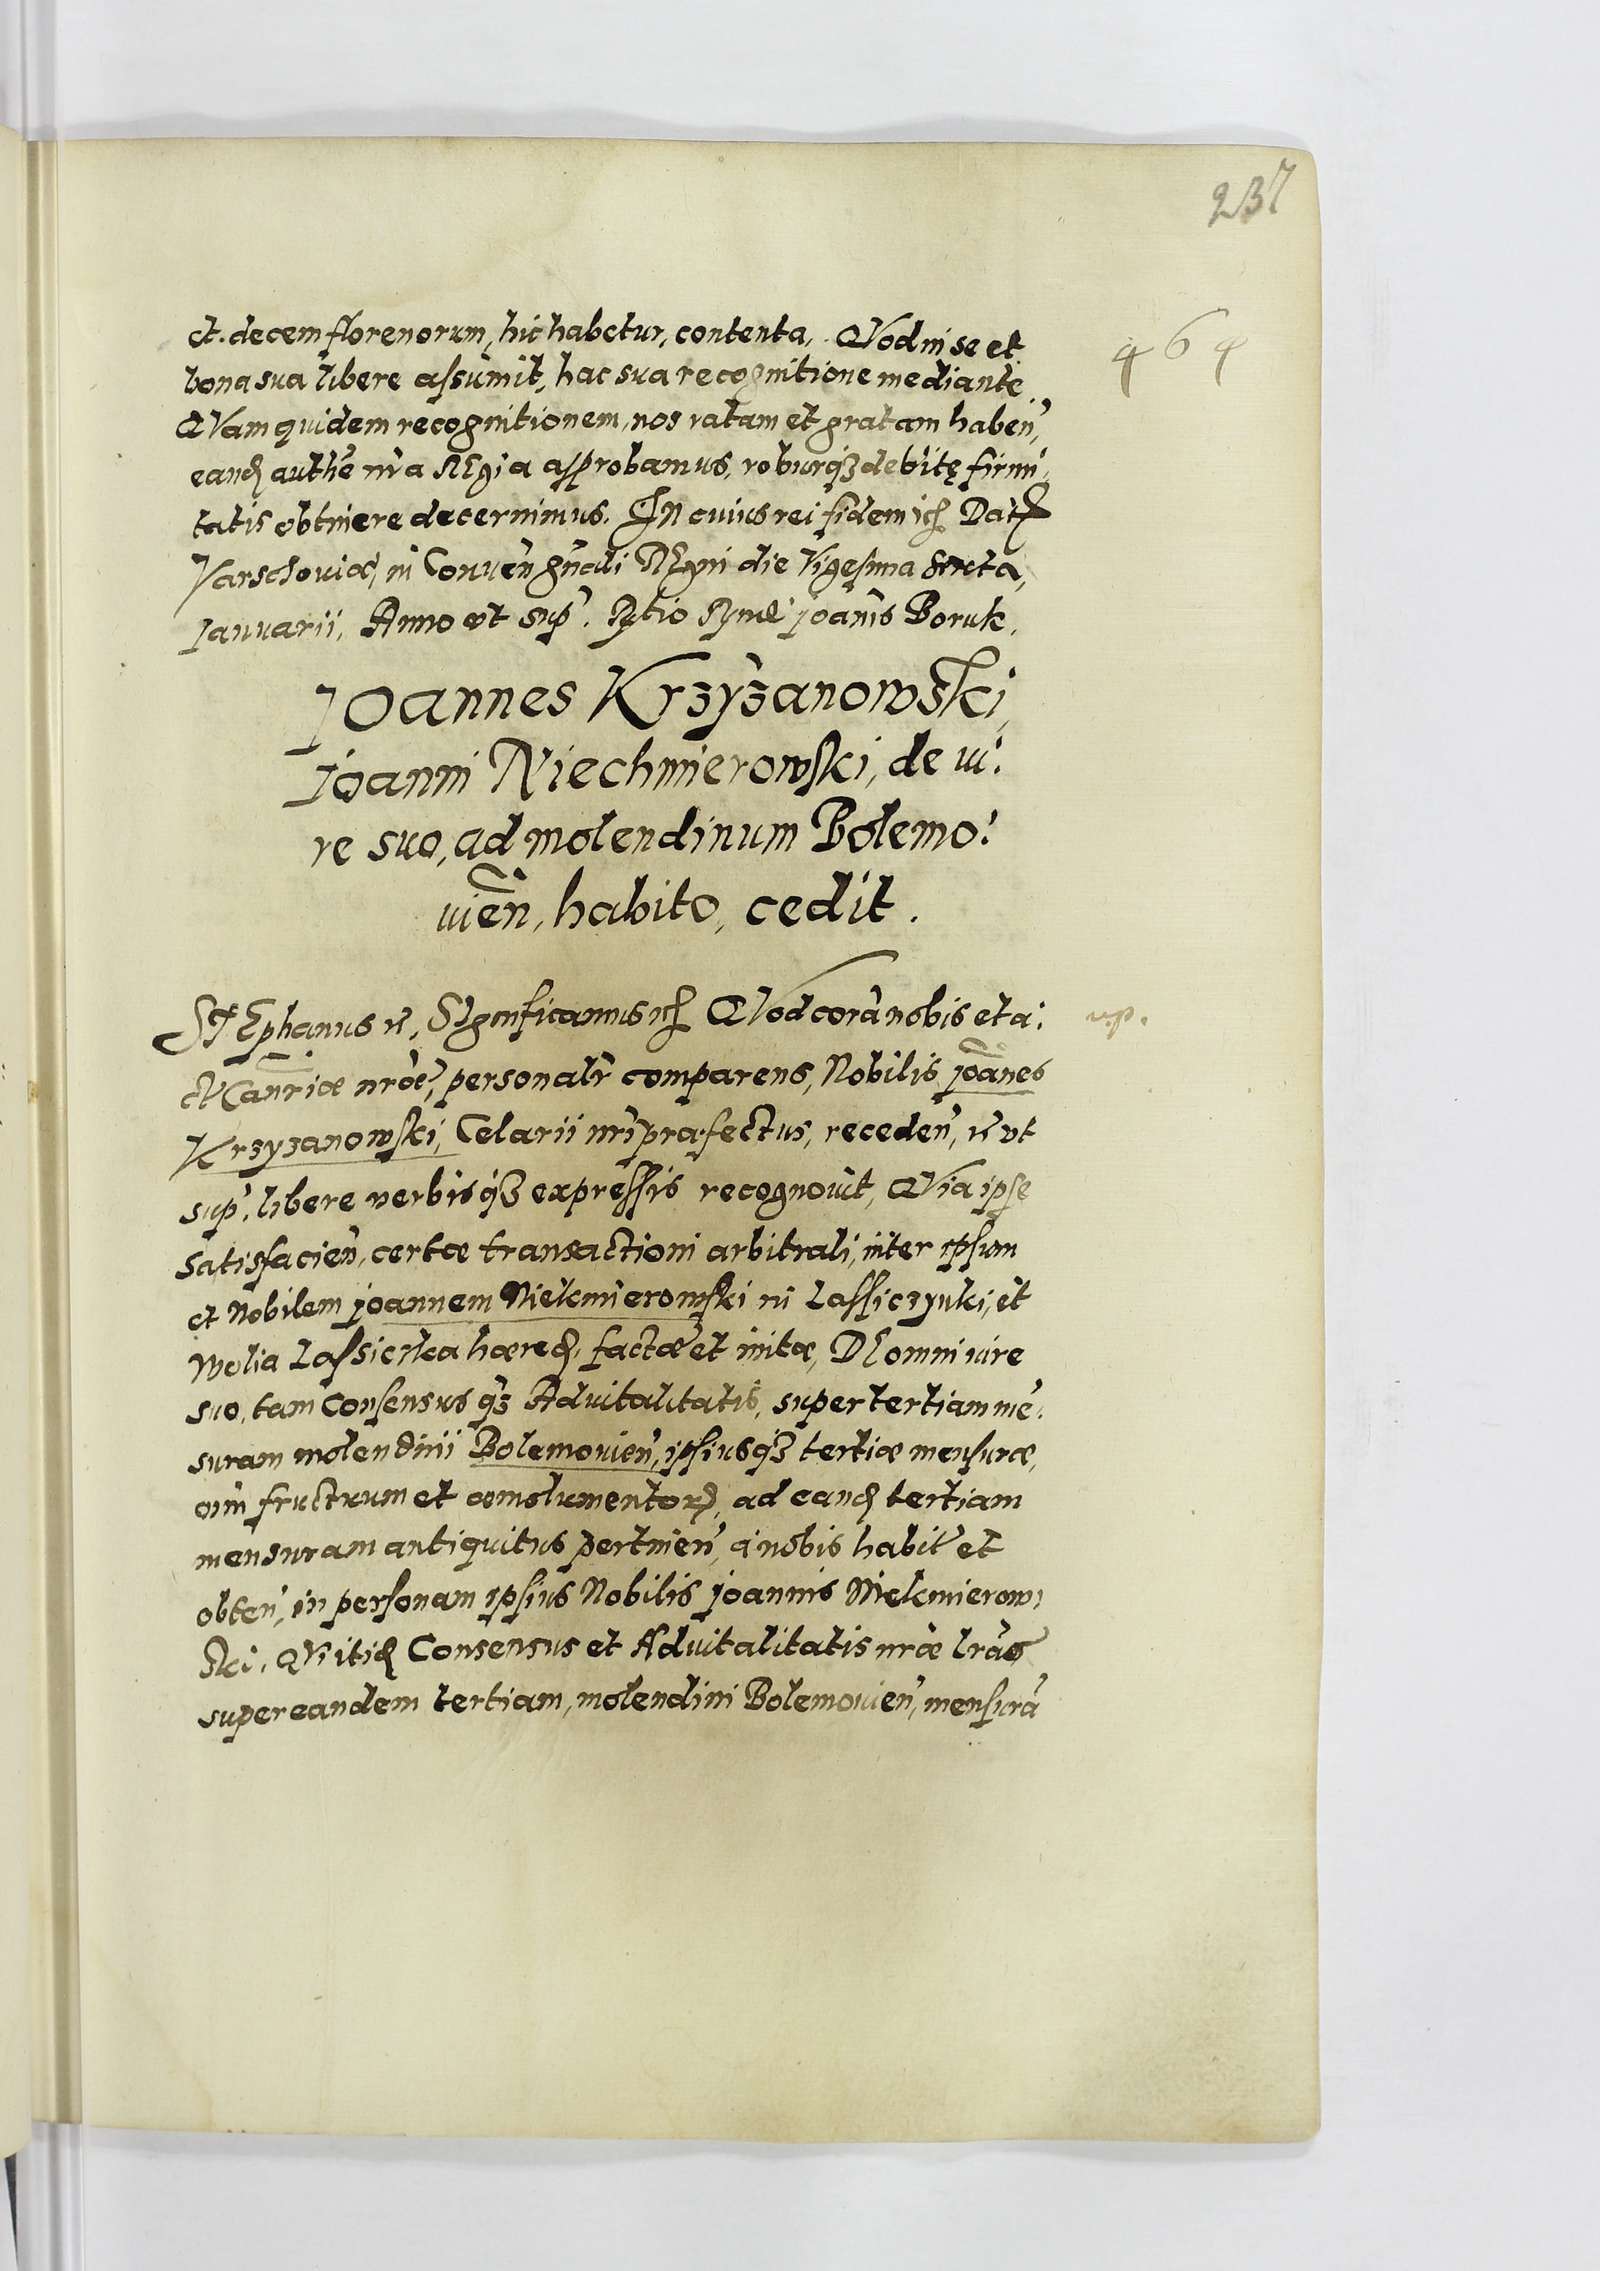 237
464
et decem florenorum, hic habetur, contenta, QVod in se et
bona sua libere assumit, hac sua recognitione mediante
QVam quidem recognitionem, nos ratam et gratam haben̄,
eand authē nr̄a REgia approbamus, roburq3 debitę firmi,
tatis obtinere decernimus. IN cuius rei fidem Dat
Varschouiæ, in Conuen̄ gn̄ali REgni die Vigesima Sexta,
Ianuarii, Anno vt sup̄. joān̄is Boruk.
Joannes Krzyżanowski,
Joanni Niechmierowski, de iu:
re suo, ad molendinum Bolemo:
uien̄, habito, cedit.
STEphanus SIgnificamus QVod corā nobis et a:
ct Canriæ nræ, personalr̄ comparens, Nobilis joānes
Krzyzanowski, Celarii nr̄i præfectus, receden̄, vt
sup̄. libere verbis q3 expressis recognouit, QVia ipse
satisfacien̄, certæ transactioni arbitrali, inter ipsum
et Nobilem joannem Nielcmierowski in Lassiczynki, et
Wolia Lassiczka hæred, factæ et initæ, DE omni iure
suo, tam Consensus q3 Aduitalitatis, super tertiam mē,
suram molendinii Bolemouien̄, ipsiusq3 tertiæ mensuræ,
om̄i fructuum et æmolumentor, ad eand tertiam
mensuram antiquitus pertinen̄, a nobis habit et
obten̄, in personam ipsius Nobilis joannis Nielcmierow,
ski, QVi itid Consensus et Aduitalitatis nræ lrās
super eandem tertiam, molendini Bolemouien̄, mensurā